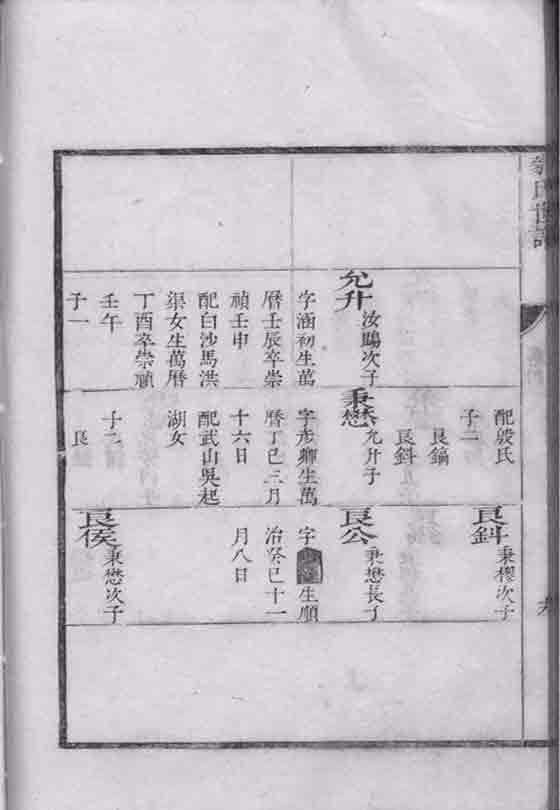 氏世譜
允升
次子
字涵初生萬
曆壬辰卒崇
禎壬申
配白沙馬洪
渠女生萬曆
丁酉卒崇禎
壬午
子一
配殷氏
子二
良鎬
良鈄
秉懋
允升子
字彥卿生萬
曆丁巳三月
十六日
配武山吳起
湖女
子二
良
良鈄
秉樛次子
良公
秉懋長子
字 生順
治癸巳十一
月八日
良侯
秉懋次子